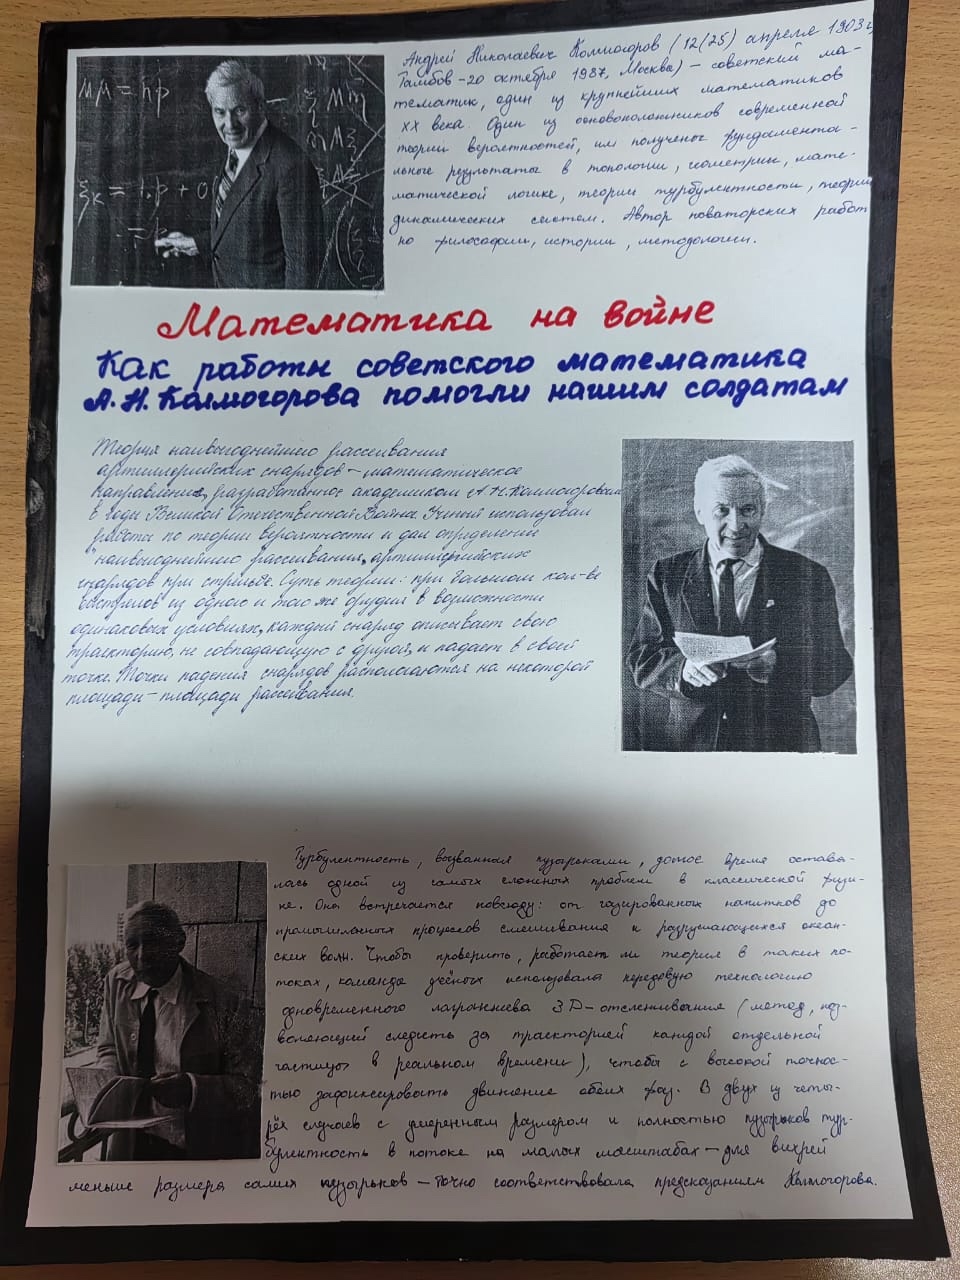 Андрей Николаевич Колмогоров (12(25) апреля 1903 г,
Тамбов – 20 октября 1987, Москва) – советский ма-
тематик, один из крупнейших математиков
XX века. Один из основоположников современной
теории вероятностей, им получены фундамента-
льные результаты в топологии, геометрии, мате-
матической логике, теории турбулентности, теории
динамических систем. Автор новаторских работ
по философии, истории, методологии.
Математика на войне
Как работы советского математика
А.Н. Колмогорова помогли нашим солдатам
Теория наивыгоднейшего рассеивания
артиллерийских снарядов – математическое
направление, разработанное академиком А.Н. Колмогоровым
в годы Великой Отечественной Войны. Ученый использовал
работы по теории вероятности и дал определение
"наивыгоднейшего рассеивания" артиллерийских
снарядов при стрельбе. Суть теории: при большом кол-ве
выстрелов из одного и того же орудия в возможности
одинаковых условиях, каждый снаряд описывает свою
траекторию, не совпадающую с другой, и падает в своей
точке. Точки падения снарядов располагаются на некоторой
площади – площади рассеивания.
Турбулентность, вызванная пузырьками, долгое время остава-
лась одной из самых сложных проблем в классической физи-
ке. Она встречается повсюду: от газированных напитков до
промышленных процессов смешивания и разрушающихся океан-
ских волн. Чтобы проверить, работает ли теория в таких по-
токах, команда учёных использовала передовую технологию
одновременного лагранжева 3D–отслеживания (метод, поз-
воляющий следить за траекторией каждой отдельной
частицы в реальном времени), чтобы с высокой точнос-
тью зафиксировать движение обеих фаз. В двух из четы-
рёх случаев с умеренным размером и полностью пузырьков тур-
булентность в потоке на малых масштабах – для вихрей
меньше размера самих пузырьков – точно соответствовала предсказаниям Колмогорова.